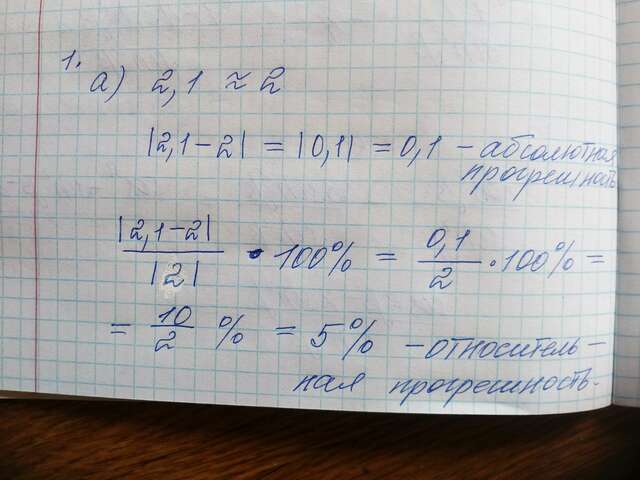 1.
а) 2,1 ≈ 2
|2,1-2| = |0,1| = 0,1 - абсолютная
прогрешность
|2,1-2| / |2| · 100% = 0,1 / 2 · 100% =
= 10/2 % = 5% - относитель-
ная прогрешность.